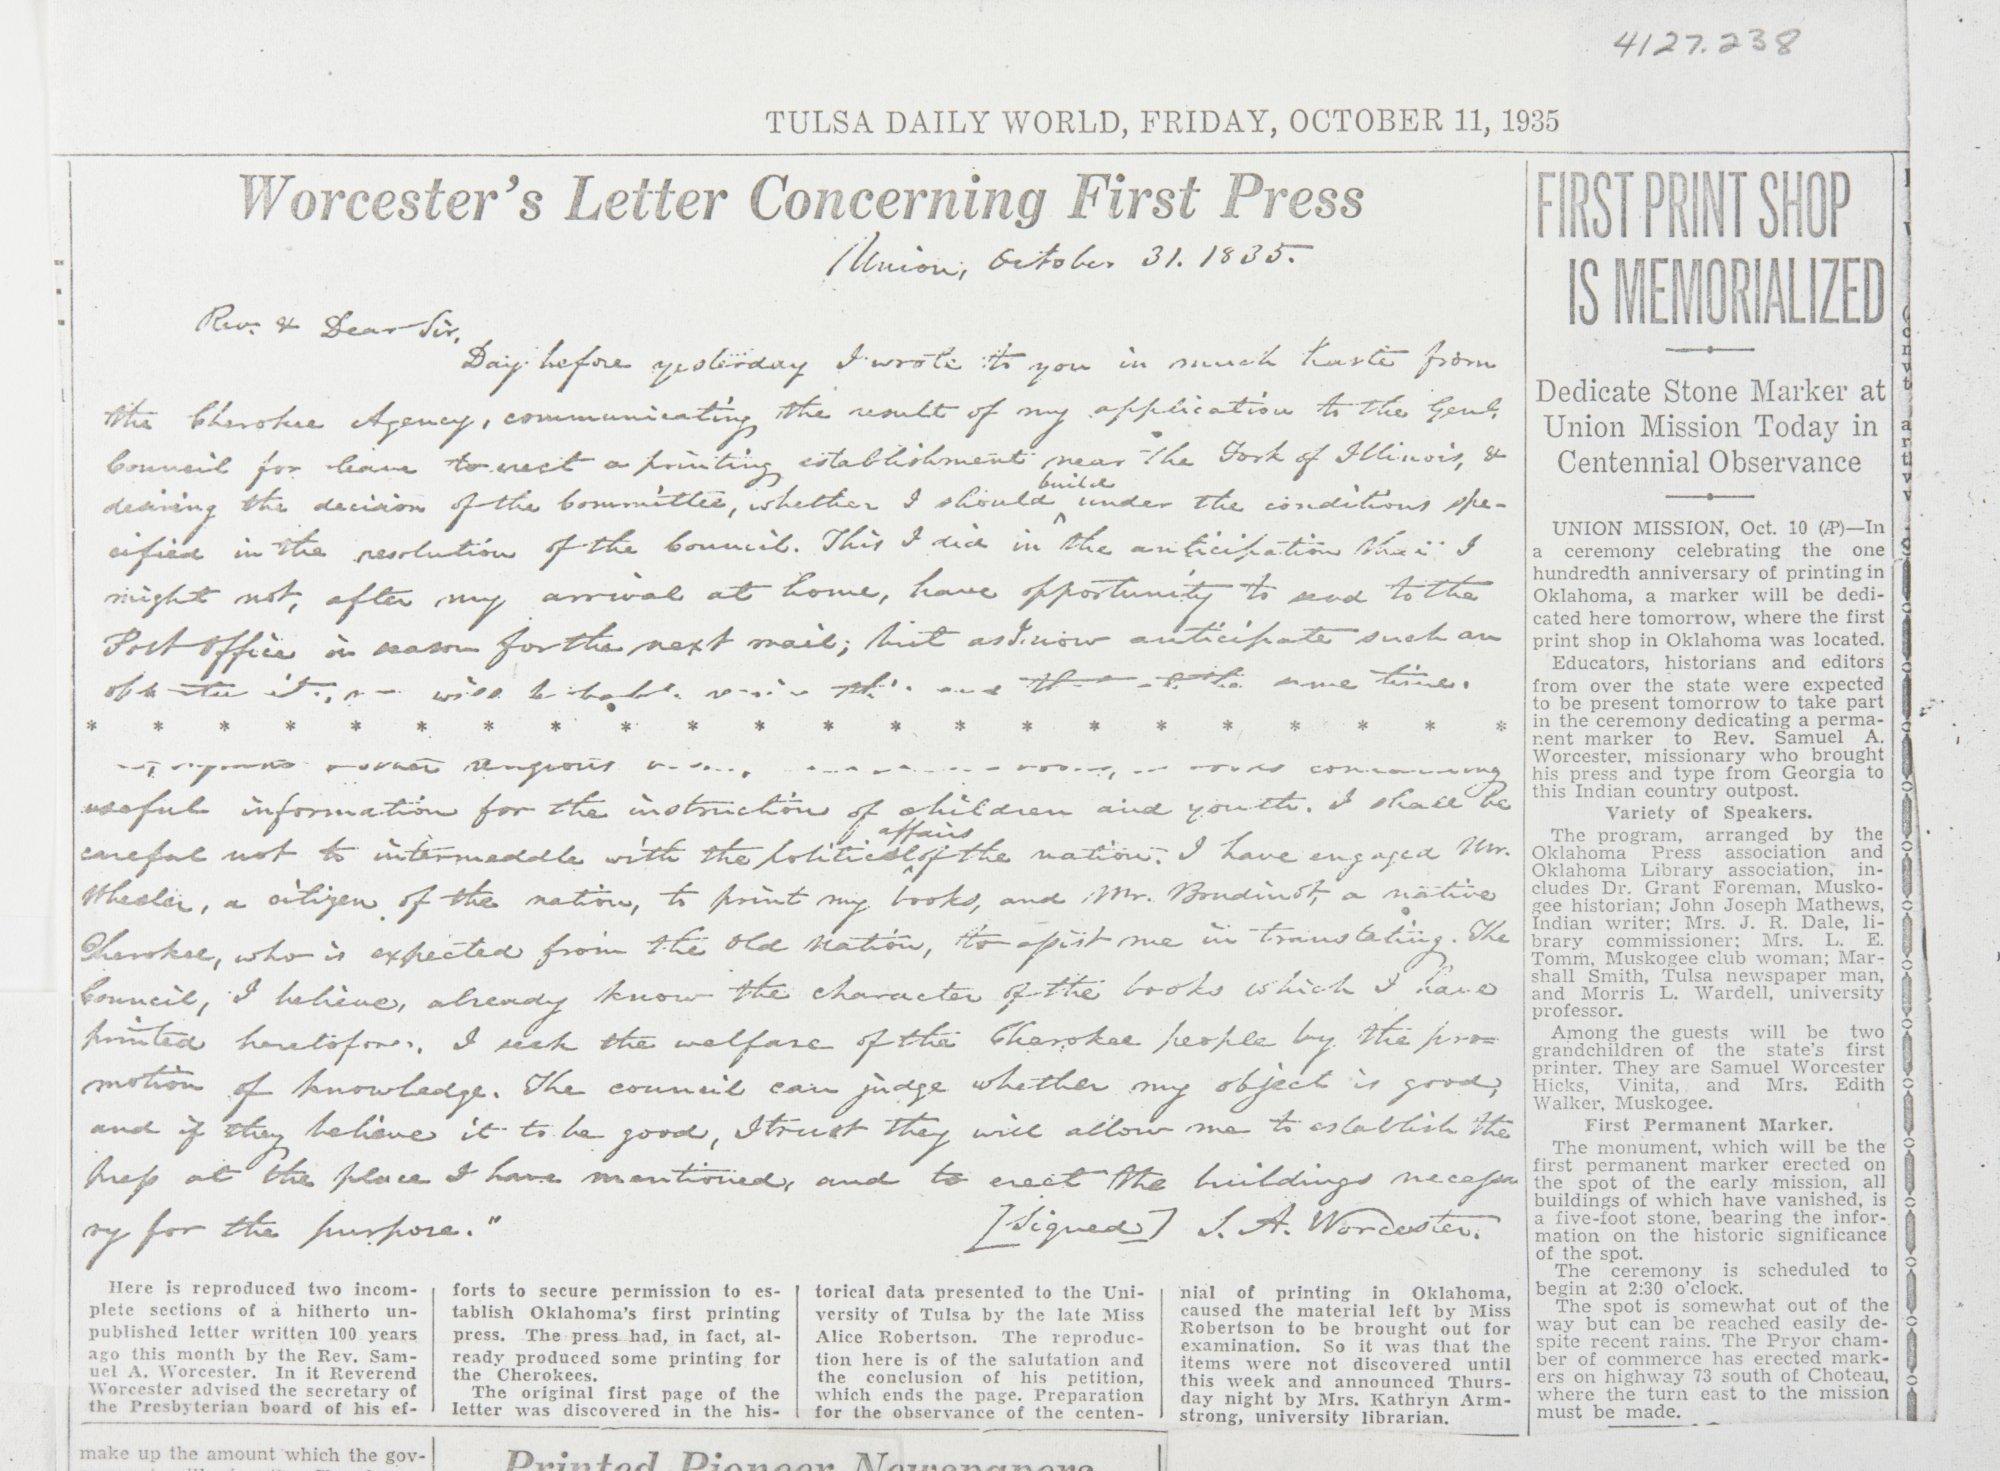 4127.238
TULSA DAILY WORLD, FRIDAY, OCTOBER 11, 1935
Worcester's Letter Concerning First Press
Union, October 31. 1835.
Rev. & Dear Sir,
Day before yesterday I wrote to you in much haste from
the Cherokee Agency, communicating the result of my application to the Genl.
Council for leave to erect a printing establishment near the Fork of Illinois, &
desiring the decision of the Committee, whether I should build under the conditions spe-
cified in the resolution of the Council. This I did in the anticipation that I
might not, after my arrival at home, have opportunity to send to the
Post Office in season for the next mail; but as I now anticipate such an
will same time.
* * * * * * * * * * * * * * * * * * * * * *
religious containing
useful information for the instruction of children and youth. I shall be
careful not to intermeddle with the political affairs of the nation. I have engaged Mr.
Wheeler, a citizen of the nation, to print my books, and Mr. Boudinot, a native
Cherokee, who is expected from the Old Nation, to assist me in translating. The
Council, I believe, already know the character of the books which I have
printed heretofore. I seek the welfare of the Cherokee people by the pro=
motion of knowledge. The council can judge whether my object is good,
and if they believe it to be good, I trust they will allow me to establish the
press at the place I have mentioned, and to erect the buildings necessa
ry for the purpose."
[Signed] S. A. Worcester.
Here is reproduced two incom-
plete sections of a hitherto un-
published letter written 100 years
ago this month by the Rev. Sam-
uel A. Worcester. In it Reverend
Worcester advised the secretary of
the Presbyterian board of his ef-
forts to secure permission to es-
tablish Oklahoma's first printing
press. The press had, in fact, al-
ready produced some printing for
the Cherokees.
The original first page of the
letter was discovered in the his-
torical data presented to the Uni-
versity of Tulsa by the late Miss
Alice Robertson. The reproduc-
tion here is of the salutation and
the conclusion of his petition,
which ends the page. Preparation
for the observance of the centen-
nial of printing in Oklahoma,
caused the material left by Miss
Robertson to be brought out for
examination. So it was that the
items were not discovered until
this week and announced Thurs-
day night by Mrs. Kathryn Arm-
strong, university librarian.
make up the amount which the gov-
Printed Pioneer Newspapers
FIRST PRINT SHOP
IS MEMORIALIZED
Dedicate Stone Marker at
Union Mission Today in
Centennial Observance
UNION MISSION, Oct. 10 (AP)—In
a ceremony celebrating the one
hundredth anniversary of printing in
Oklahoma, a marker will be dedi-
cated here tomorrow, where the first
print shop in Oklahoma was located.
Educators, historians and editors
from over the state were expected
to be present tomorrow to take part
in the ceremony dedicating a perma-
nent marker to Rev. Samuel A.
Worcester, missionary who brought
his press and type from Georgia to
this Indian country outpost.
Variety of Speakers.
The program, arranged by the
Oklahoma Press association and
Oklahoma Library association, in-
cludes Dr. Grant Foreman, Musko-
gee historian; John Joseph Mathews,
Indian writer; Mrs. J. R. Dale, li-
brary commissioner; Mrs. L. E.
Tomm, Muskogee club woman; Mar-
shall Smith, Tulsa newspaper man,
and Morris L. Wardell, university
professor.
Among the guests will be two
grandchildren of the state's first
printer. They are Samuel Worcester
Hicks, Vinita, and Mrs. Edith
Walker, Muskogee.
First Permanent Marker.
The monument, which will be the
first permanent marker erected on
the spot of the early mission, all
buildings of which have vanished, is
a five-foot stone, bearing the infor-
mation on the historic significance
of the spot.
The ceremony is scheduled to
begin at 2:30 o'clock.
The spot is somewhat out of the
way but can be reached easily de-
spite recent rains. The Pryor cham-
ber of commerce has erected mark-
ers on highway 73 south of Choteau,
where the turn east to the mission
must be made.